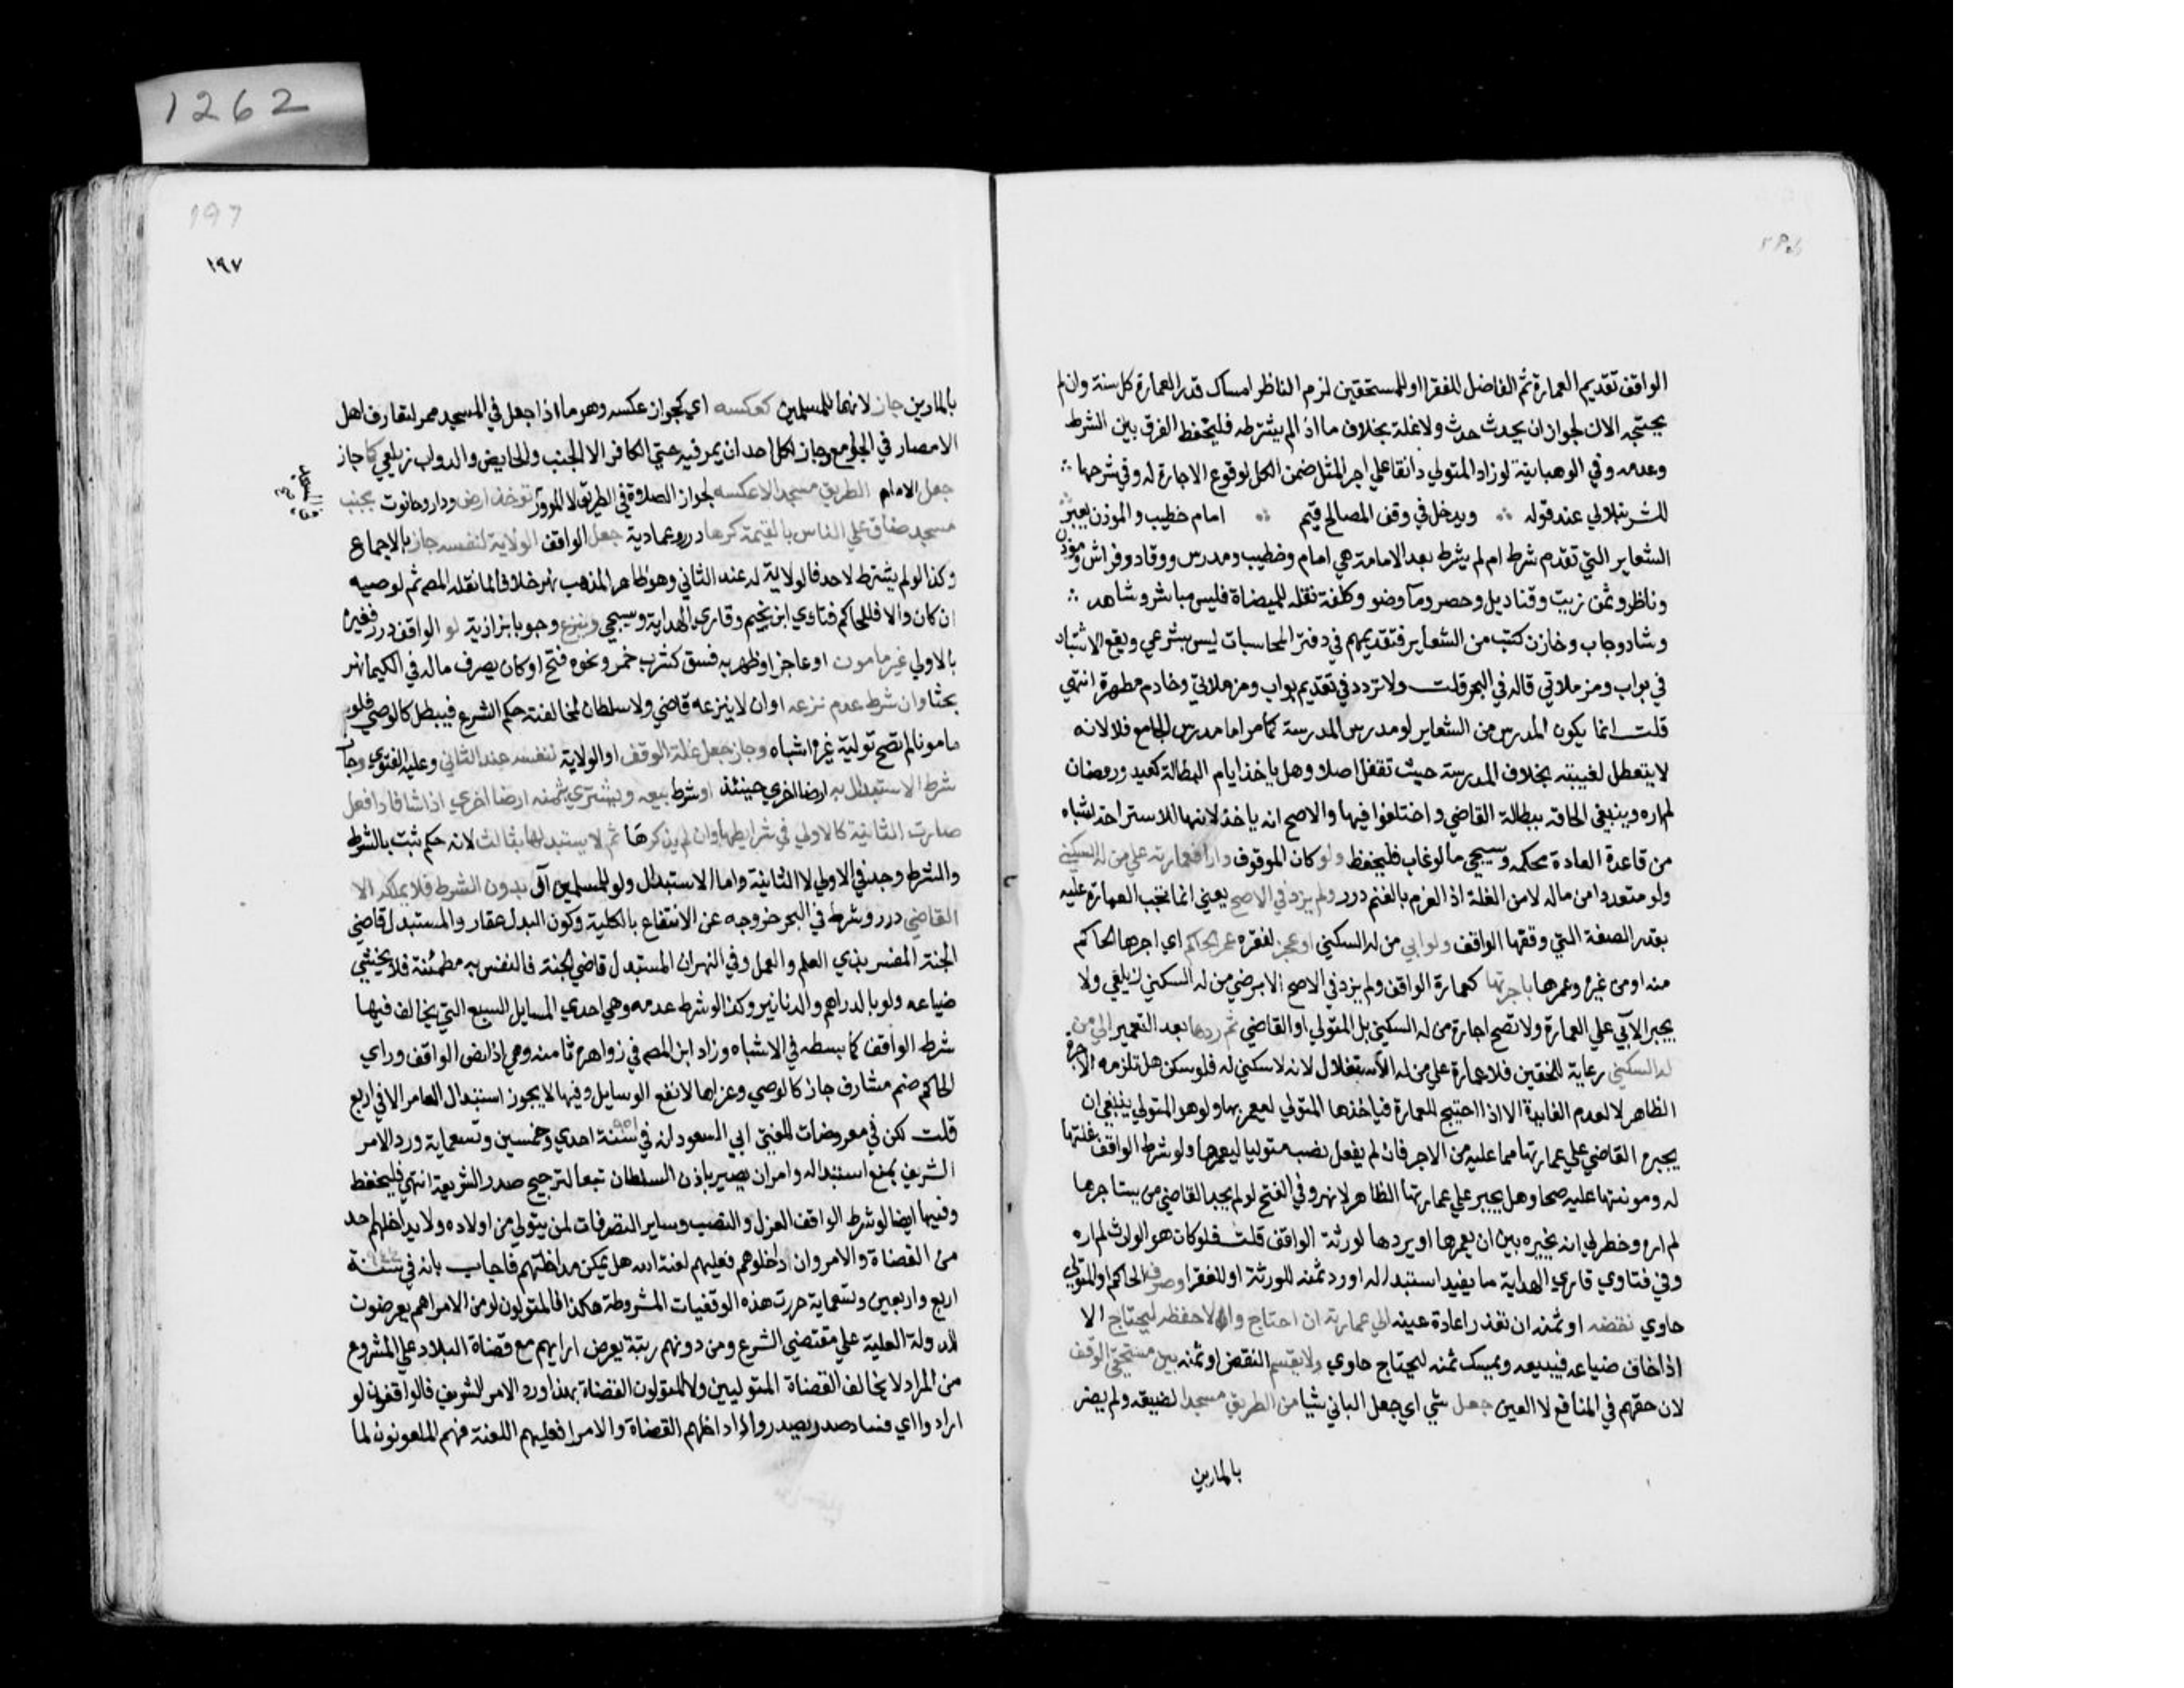 1262
الواقف تقديم العمارة ثم الفاضل للفقرا او للمستحقين لزم الناظر امساك قدر العمارة كل سنة وان لم
يحتجه الان لجواز ان يحدث حدث ولا غلة بخلاف ما اذا لم يشترطه فليحفظ الفرق بين الشرط
وعدمه وفي الوهبانية لو زاد المتولي دانقا علي اجر المثل ضمن الكل لوقوع الاجارة له وفي شرحها
للشرنبلالي عند قوله ويدخل في وقف المصالح قيم امام خطيب والموذن يعبر
الشعاير التي تقدم شرط ام لم يشرط بعد الامامة هي امام وخطيب ومدرس ووقاد وفراش وموذن
وناظر وثمن زيت وقناديل وحصر ومآ وضو وكلفة نقله للميضاة فليس مباشر وشاهد
وشاد وجاب وخازن كتب من الشعاير فتقديمهم في دفتر المحاسبات ليس بشرعي ويقع الاشتباه
في بواب ومزملاتي قاله في البحر قلت ولا تردد في تقديم بواب ومزملاتي وخادم مطهرة انتهي
قلت انما يكون المدرس من الشعاير لو مدرس المدرسة كما مر اما مدرس الجامع فلا لانه
لا يتعطل لغيبته بخلاف المدرسة حيث تقفل اصلا وهل ياخذ ايام البطالة كعيد ورمضان
لم اره وينبغي الحاقه ببطالة القاضي واختلفوا فيها والاصح انه ياخذ لانها للاستراحة اشباه
من قاعدة العادة محكمه وسيجي ما لو غاب فليحفظ ولو كان الموقوف دارا فعمارته علي من له السكني
ولو متعددا من ماله لا من الغلة اذ الغرم بالغنم درر ولم يزد في الاصح يعني انما تجب العمارة عليه
بقدر الصفة التي وقفها الواقف ولو ابي من له السكني او عجز لفقره عمر الحاكم اي اجرها الحاكم
منه او من غيره وعمرها باجرتها كعمارة الواقف ولم يزد في الاصح الا برضي من له السكني زيلعي ولا
يجبر الآبي علي العمارة ولا تصح اجارة من له السكني بل المتولي او القاضي ثم ردها بعد التعمير الي من
له السكني رعاية للحقين فلا عمارة علي من له الاستغلال لانه لا سكني له فلو سكن هل تلزمه الاجرة
الظاهر لا لعدم الفايدة الا اذا احتيج للعمارة فياخذها المتولي ليعمر بها ولو هو المتولي ينبغي ان
يجبره القاضي علي عمارتها مما عليه من الاجر فان لم يفعل نصب متوليا ليعمرها ولو شرط الواقف غلتها
له ومونتها عليه صحا وهل يجبر علي عمارتها الظاهر لا نهر وفي الفتح لو لم يجد القاضي من يستاجرها
لم اره وخطر لي انه يخيره بين ان يعمرها او يردها لورثة الواقف قلت فلو كان هو الوارث لم اره
وفي فتاوي قاري الهداية ما يفيد استبداله او رد ثمنه للورثة او للفقرا وصرف الحاكم او المتولي
حاوي نقضه او ثمنه ان تعذر اعادة عينه الي عمارته ان احتاج والا حفظه ليحتاج الا
اذا خاف ضياعه فيبيعه ويمسك ثمنه ليحتاج حاوي ولا يقسم النقض او ثمنه بين مستحقي الوقف
لان حقهم في المنافع لا العين جعل شي اي جعل الباني شيا من الطريق مسجدا لضيقه ولم يضر
بالمارين
197
١٩٧
بالمارين جاز لانهما للمسلمين كعكسه اي كجواز عكسه وهو ما اذا جعل في المسجد ممر لتعارف اهل
الامصار في الجوامع وجاز لكل احد ان يمر فيه حتي الكافر الا الجنب والحايض والدواب زيلعي كما جاز
جعل الامام الطريق مسجدا لا عكسه لجواز الصلاة في الطريق لا المرور توخذ ارض ودار وحانوت بجنب
مسجد ضاق علي الناس بالقيمة كرها درر وعمادية جعل الواقف الولاية لنفسه جاز بالاجماع
وكذا لو لم يشترط لاحد فالولاية له عند الثاني وهو ظاهر المذهب نهر خلافا لما نقله المص ثم لوصيه
ان كان والا فللحاكم فتاوي ابن نجيم وقاري الهداية وسيجي وينزع وجوبا بزازية لو الواقف درر فغيره
بالاولي غير مامون او عاجز او ظهر به فسق كشرب خمر ونحوه فتح او كان يصرف ماله في الكيميا نهر
بحثا وان شرط عدم نزعه او ان لا ينزعه قاضي ولا سلطان لمخالفته حكم الشرع فيبطل كالوصي فلو
مامونا لم تصح تولية غيره اشباه وجاز جعل غلة الوقف او الولاية لنفسه عند الثاني وعليه الفتوي وجاز
شرط الاستبدال به ارضا اخري حينئذ او شرط بيعه ويشتري بثمنه ارضا اخري اذا شا فاذا فعل
صارت الثانية كالاولي في شرايطها وان لم يذكرها ثم لا يستبدلها بثالث لانه حكم ثبت بالشرط
والشرط وجد في الاولي لا الثانية واما الاستبدال ولو للمسلمين آل بدون الشرط فلا يملكه الا
القاضي درر وشرط في البحر خروجه عن الانتفاع بالكلية وكون البدل عقار والمستبدل قاضي
الجنة المفسر بذي العلم والعمل وفي النهر ان المستبدل قاضي الجنة فالنفس به مطمئنة فلا يخشي
ضياعه ولو بالدراهم والدنانير وكذا لو شرط عدمه وهي احدي المسايل السبع التي يخالف فيها
شرط الواقف كما بسطه في الاشباه وزاد ابن المص في زواهره ثامنه وهي اذا نص الواقف وراي
الحاكم ضم مشارف جاز كالوصي وعزاها لانفع الوسايل وفيها لا يجوز استبدال العامر الا في اربع
قلت لكن في معروضات المفتي ابي السعود انه في سنة ٩٥١ احدي وخمسين وتسعماية ورد الامر
الشريف بمنع استبداله وامر ان يصير باذن السلطان تبعا لترجيح صدر الشريعة انتهي فليحفظ
وفيها ايضا لو شرط الواقف العزل والنصب وساير التصرفات لمن يتولي من اولاده ولا يداخلهم احد
من القضاة والامر وان داخلوهم فعليهم لعنة الله هل يمكن مداخلتهم فاجاب بانه في سنة
اربع واربعين وتسعماية حررت هذه الوقفيات المشروطة هكذا فالمتولون لو من الامرا هم يعرضون
للدولة العلية علي مقتضي الشرع ومن دونهم رتبة يعرض ارايهم مع قضاة البلاد علي المشروع
من المراد لا يخالف القضاة المتوليين ولا المتولون القضاة بهذا ورد الامر الشريف فالواقفون لو
ارادوا اي فساد صدر يصدر واذا داخلهم القضاة والامرا فعليهم اللعنة فهم الملعونون لما